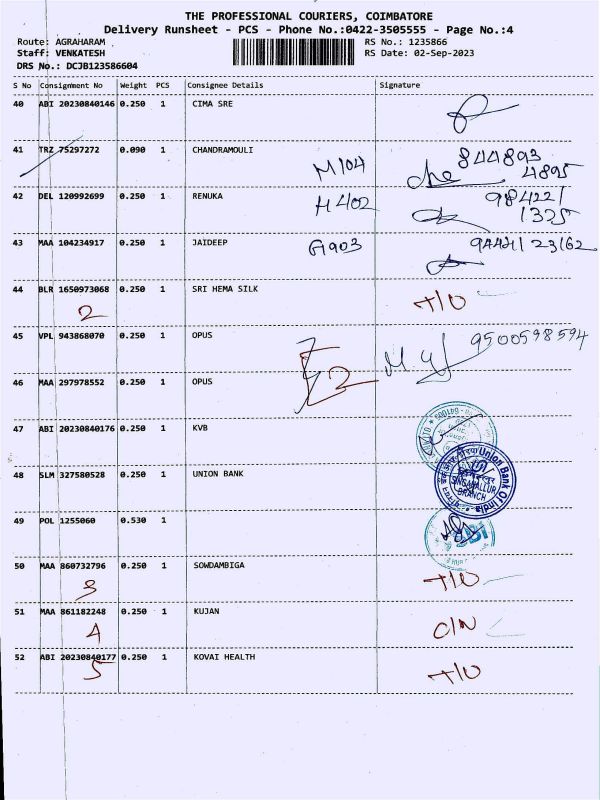 THE PROFESSIONAL COURIERS, COIMBATORE
Delivery Runsheet - PCS - Phone No.:0422-3505555 - Page No.:4
Route: AGRAHARAM RS No.: 1235866
Staff: VENKATESH RS Date: 02-Sep-2023
DRS No.: DCJB123586604
S No Consignment No Weight PCS Consignee Details Signature
40 ABI 20230840146 0.250 1 CIMA SRE
41 TRZ 75297272 0.090 1 CHANDRAMOULI
M104 844893
4895
42 DEL 120992699 0.250 1 RENUKA
H402 984221
1325
43 MAA 104234917 0.250 1 JAIDEEP G903
44 BLR 1650973068 0.250 1 SRI HEMA SILK
2 T/O
45 VPL 943868070 0.250 1 OPUS 9500598594
2
46 MAA 297978552 0.250 1 OPUS
47 ABI 20230840176 0.250 1 KVB
48 SLM 327580528 0.250 1 UNION BANK
Union Bank Of India
SINGANALLUR
BRANCH
49 POL 1255060 0.530 1
50 MAA 860732796 0.250 1 SOWDAMBIGA
3 T/O
51 MAA 861182248 0.250 1 KUJAN
4 C/N
52 ABI 20230840177 0.250 1 KOVAI HEALTH
5 T/O